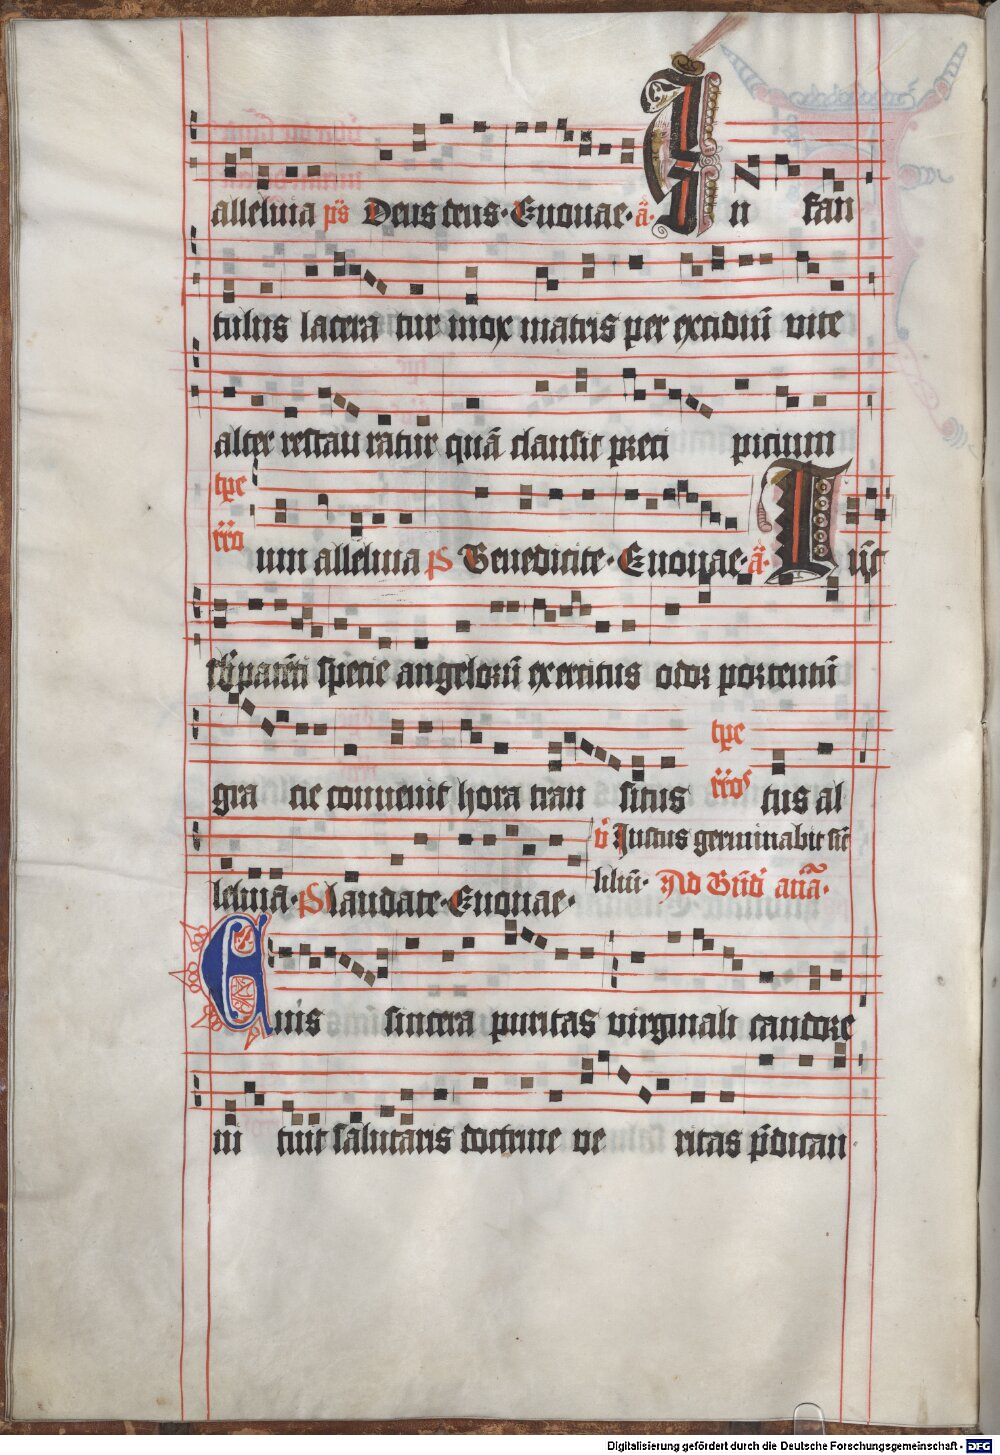 alleluia ps Deus deus. Euouae. a. In fan
tulus lacera tur mox matris per excidiū vite
alter restau ratur quā clausit preci picium
tpe
rro
um alleluia ps Benedicite. Euouae. a.
specie angelorū exercitus odor portentū
gra cie conuenit hora tran situs
tpe
tus al
leluia. ps laudate. Euouae.
v Iustus germinabit sic
liliū. Ad Bñd añā.
Cuius sincera puritas virginali candore
ni tuit salutaris doctrine ve ritas p̄dican
Digitalisierung gefördert durch die Deutsche Forschungsgemeinschaft - DFG